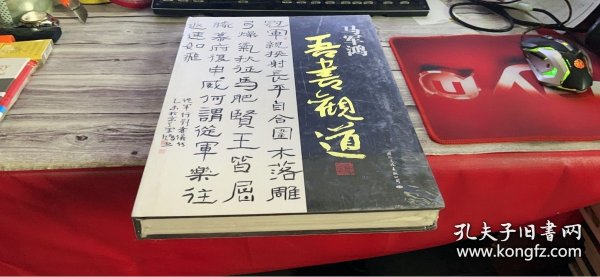 马军鸿
吾書觀道
冠軍親挾射長平自合圍木落雕
弓燥氣秋征馬肥賢王皆屈
膝幕府復申威何謂從軍樂往
返速如飛
孔夫子旧书网
www.kongfz.com